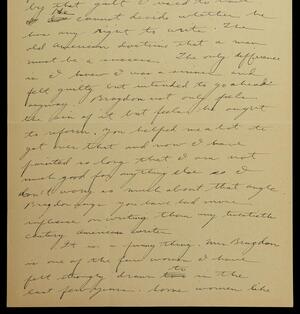 by that guilt I used to have
cannot decide whether he
has any right to write. The
old American doctrine that a man
must be a success. The only difference
is I knew I was a sinner and
felt guilty but intended to go ahead
anyway. Bragdon not only feels
the sin of it but feels he ought
to reform. You helped me a lot to
get over that and now I have
painted so long that I am not
much good for anything else so I
don't worry so much about that angle.
Bragdon says you have had more
influence on writing than any twentieth
century American writer.
It is a funny thing. Mrs Bragdon
is one of the few women I have
felt strongly drawn to in the
last few years. Some women like